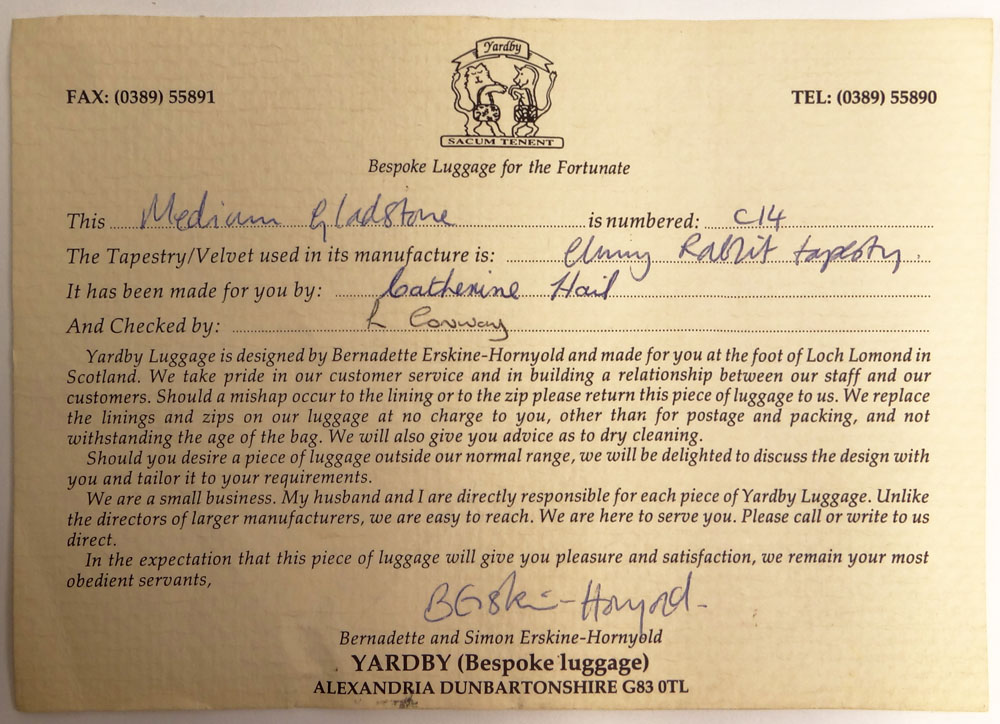 Yardby
FAX: (0389) 55891
TEL: (0389) 55890
SACUM TENENT
Bespoke Luggage for the Fortunate
This Medium Gladstone is numbered: C14
The Tapestry/Velvet used in its manufacture is: Cluny Rabbit tapestry.
It has been made for you by: Catherine Hail
And Checked by: L Conway
Yardby Luggage is designed by Bernadette Erskine-Hornyold and made for you at the foot of Loch Lomond in
Scotland. We take pride in our customer service and in building a relationship between our staff and our
customers. Should a mishap occur to the lining or to the zip please return this piece of luggage to us. We replace
the linings and zips on our luggage at no charge to you, other than for postage and packing, and not
withstanding the age of the bag. We will also give you advice as to dry cleaning.
Should you desire a piece of luggage outside our normal range, we will be delighted to discuss the design with
you and tailor it to your requirements.
We are a small business. My husband and I are directly responsible for each piece of Yardby Luggage. Unlike
the directors of larger manufacturers, we are easy to reach. We are here to serve you. Please call or write to us
direct.
In the expectation that this piece of luggage will give you pleasure and satisfaction, we remain your most
obedient servants,
BErskine-Hornyold-
Bernadette and Simon Erskine-Hornyold
YARDBY (Bespoke luggage)
ALEXANDRIA DUNBARTONSHIRE G83 0TL